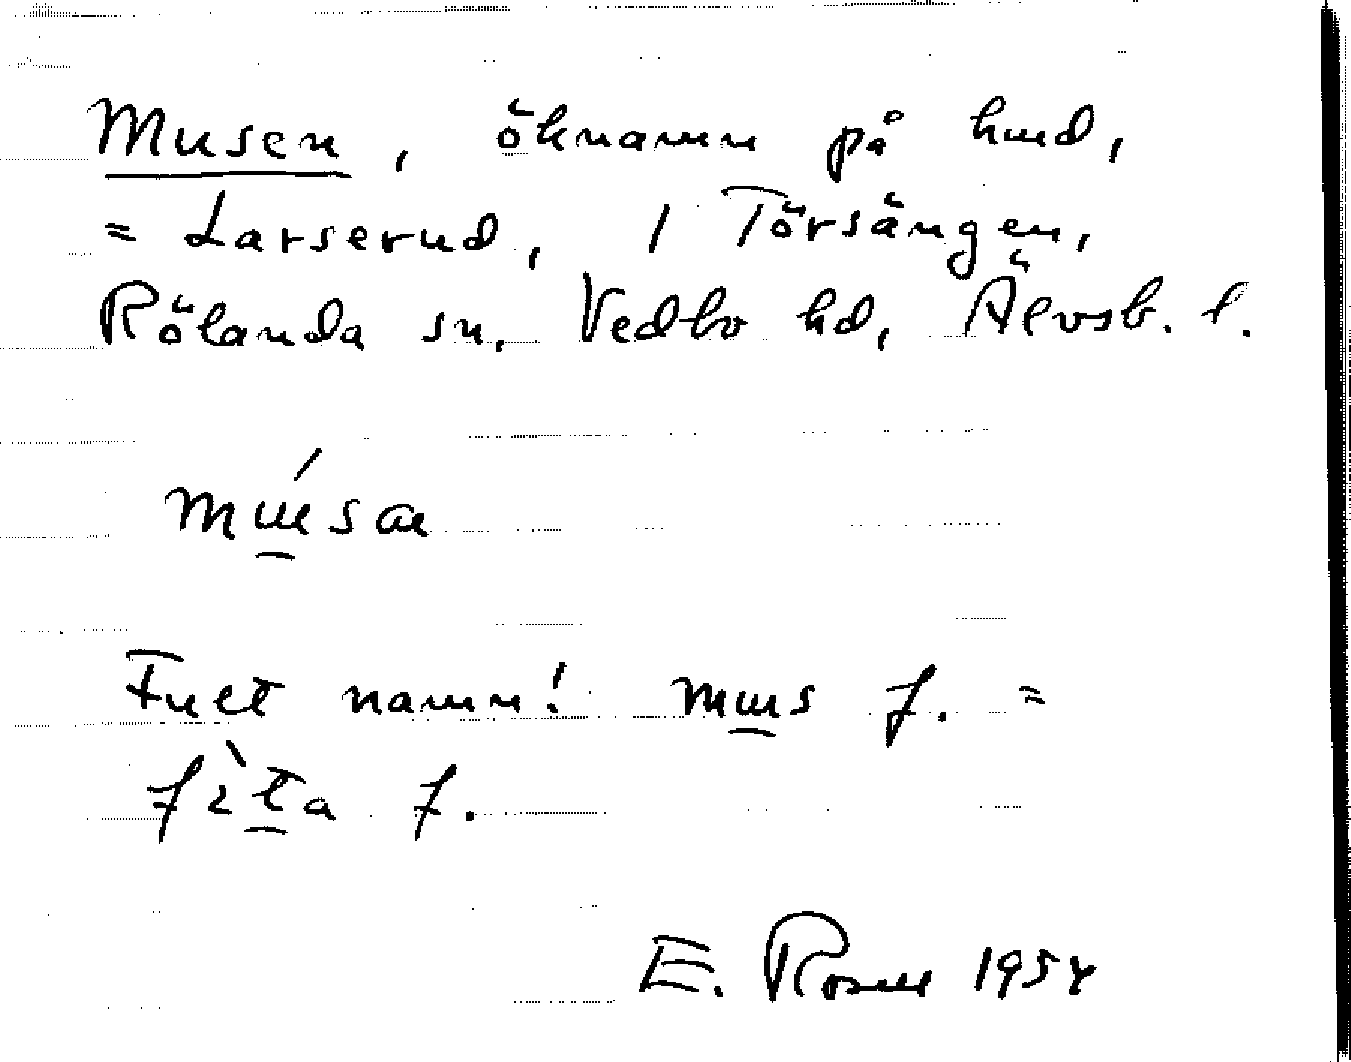 Musen, öknamn på hmd,
= Larserud, / Törsängen,
Rölanda sn, Vedbo hd, Älvsb. l.
músan
Fult namn! mus f. =
fìta f.
E. Rosell 1954